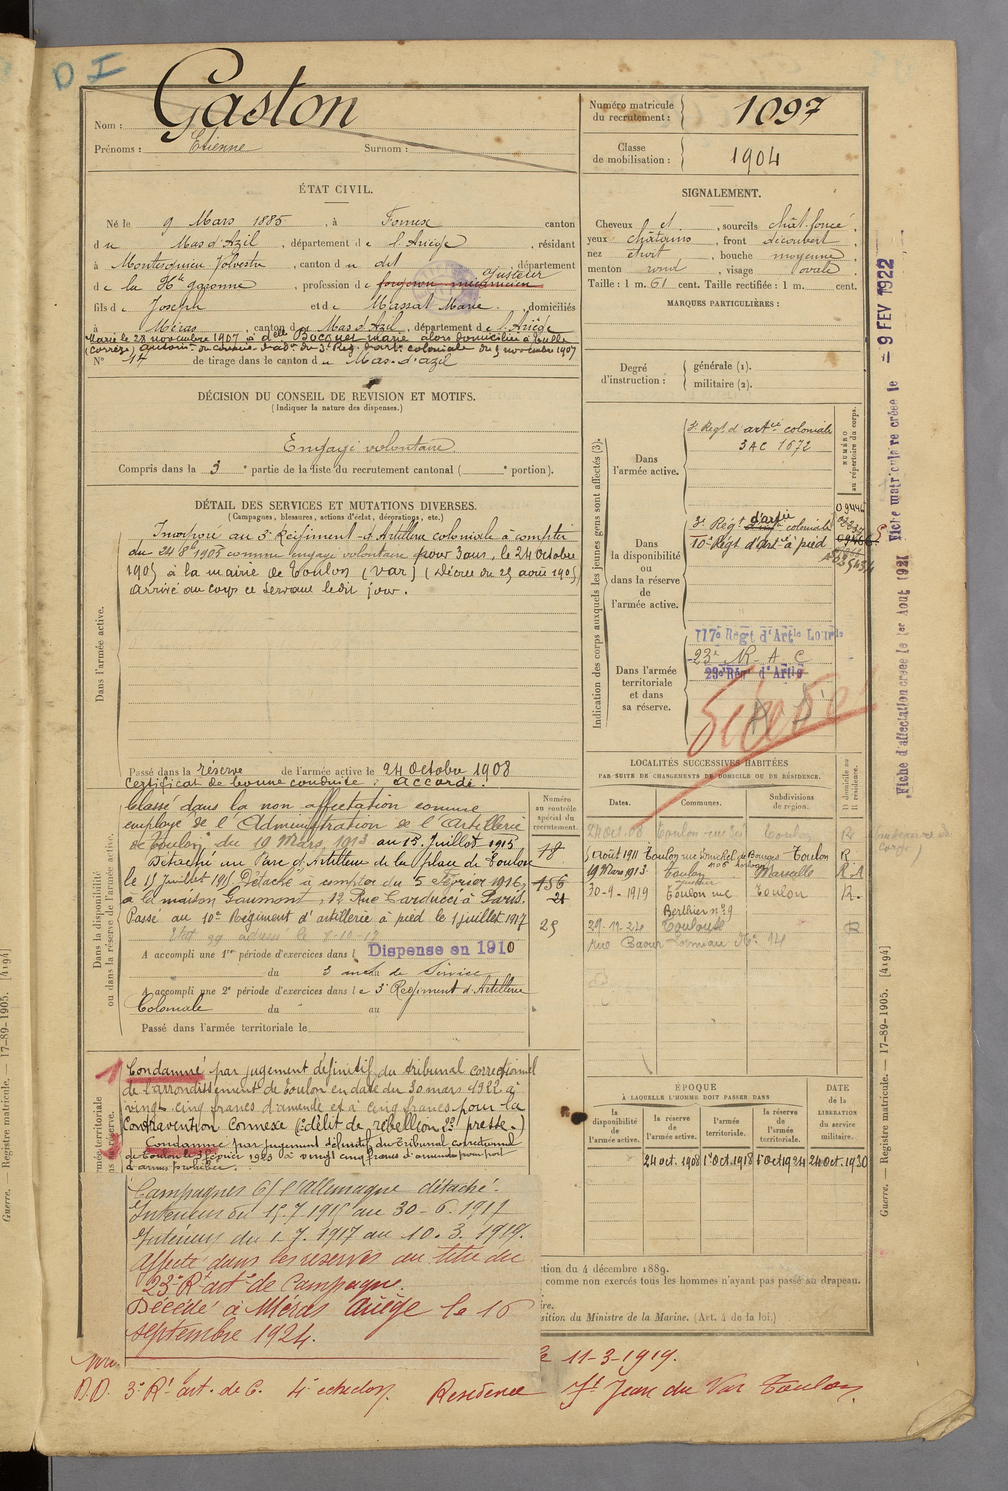 D I
Nom : Gaston
Prénoms : Etienne Surnom :
Numéro matricule du recrutement : 1097
Classe de mobilisation : 1904
ÉTAT CIVIL.
Né le 9 Mars 1885, à Fornex canton
du Mas d'Azil, département de l'Ariège, résidant
à Montesquieu Volvestre, canton du dit département
de la Hte garonne, profession de Ajusteur
fils de Joseph et de Massat Marie domiciliés
à Méras, canton du Mas d'Azil, département de l'Ariège
Marié le 28 novembre 1907 à delle Bocquet marie alors domiciliée à Tulle
(Corrèze) du 3e Reg. d'art. coloniale du 5 novembre 1907
N° 47 de tirage dans le canton du Mas-d'azil
SIGNALEMENT.
Cheveux et, sourcils chât. foncé
yeux châtains, front découvert
nez étroit, bouche moyenne
menton rond, visage ovale
Taille : 1 m. 61 cent. Taille rectifiée : 1 m. cent.
MARQUES PARTICULIÈRES :
Degré d'instruction : générale (1).
militaire (2).
DÉCISION DU CONSEIL DE REVISION ET MOTIFS.
(Indiquer la nature des dispenses.)
Engagé volontaire
Compris dans la 3e partie de la liste du recrutement cantonal ( e portion).
DÉTAIL DES SERVICES ET MUTATIONS DIVERSES.
(Campagnes, blessures, actions d'éclat, décorations, etc.)
Dans l'armée active.
Incorporé au 3e Régiment d'Artillerie coloniale à compter
du 24 8bre 1905 comme engagé volontaire pour 3 ans, le 24 Octobre
1905 à la mairie de Toulon (Var) (Décret du 25 août 1905
arrivé au corps ce servant ledit jour.
Passé dans la réserve de l'armée active le 24 Octobre 1908
Certificat de bonne conduite : accordé.
Dans la disponibilité ou dans la réserve de l'armée active.
Classé dans la non affectation comme
employé de l'Administration de l'Artillerie
de Toulon, du 19 Mars, 1913 au 15 Juillet 1915
Détaché au Parc d'Artillerie de la place de Toulon
le 15 Juillet 1915 Détaché à compter du 5 Février 1916,
à la maison Gaumont, 12 Rue Carducci à Paris.
Passé au 10e Régiment d'artillerie à pied le 1 juillet 1917
A accompli une 1re période d'exercices dans l Dispense en 1910
du 3 ans de Service
A accompli une 2e période d'exercices dans le 3e Régiment d'Artillerie
Coloniale du au
Passé dans l'armée territoriale le
Numéro au contrôle spécial du recrutement.
78
156
21
25
Indication des corps auxquels les jeunes gens sont affectés (3).
Dans l'armée active.
3e Regt d'artie coloniale
3 AC 1672
NUMÉRO au répertoire du corps.
Dans la disponibilité ou dans la réserve de l'armée active.
3e Régt d'artie coloniale
10e Régt d'Artie à pied
Dans l'armée territoriale et dans sa réserve.
117e Régt d'Artie Lourde
23e R A C
23e Rég. d'Artie
Décédé
LOCALITÉS SUCCESSIVES HABITÉES
PAR SUITE DE CHANGEMENTS DE DOMICILE OU DE RÉSIDENCE.
Dates. Communes. Subdivisions de région. D domicile ou R résidence.
24 oct. 08 Toulon Toulon R
5 Août 1911 Toulon rue Michel de Bourges Toulon R
19 Mars 1913 Toulon Marseille R
30-9-1919 Toulon rue Toulon R.
Berthier n° 9
29-12-24 Toulouse R
rue Baour Lormian N° 14
1
Condamné par jugement définitif du tribunal correctionnel
de l'arrondissement de Toulon en date du 30 mars 1922 à
vingt cinq francs d'amende et à cinq francs pour la
contravention connexe (1° délit de rébellion 2° presse.)
Condamné par jugement définitif du Tribunal correctionnel
de Toulon le 3 février 1923 à vingt cinq francs d'amende pour port
d'armes prohibées.
Campagnes C/ l'Allemagne détaché.
Intérieur du 15.7 1915 au 30-6.1917
Intérieur du 1.7.1917 au 10.3.1919.
Affecté dans les réserves au titre du
23e Rt art. de Campagne.
Décédé à Méras Ariège le 16
septembre 1924.
EPOQUE
À LAQUELLE L'HOMME DOIT PASSER DANS
la disponibilité de l'armée active. la réserve de l'armée active. l'armée territoriale. la réserve de l'armée territoriale.
DATE DE LA LIBÉRATION DU service militaire.
24 oct. 1908 1er Oct. 1918 1er Oct 1924 24 oct. 1930
ction du 4 décembre 1889.
comme non exercés tous les hommes n'ayant pas passé au drapeau.
ire.
sition du Ministre de la Marine. (Art. 4 de la loi.)
le 11-3-1919.
D.D. 3e Rt art. de C. 4e echelon. Residence St Jean du Var Toulon
Fiche d'affectation créée le 1er Aout 1921 Fiche matriculaire créée le - 9 FEV 1922
Guerre. — Registre matricule. — 17-89-1905. [4194]
Guerre. — Registre matricule. — 17-89-1905. [4194]